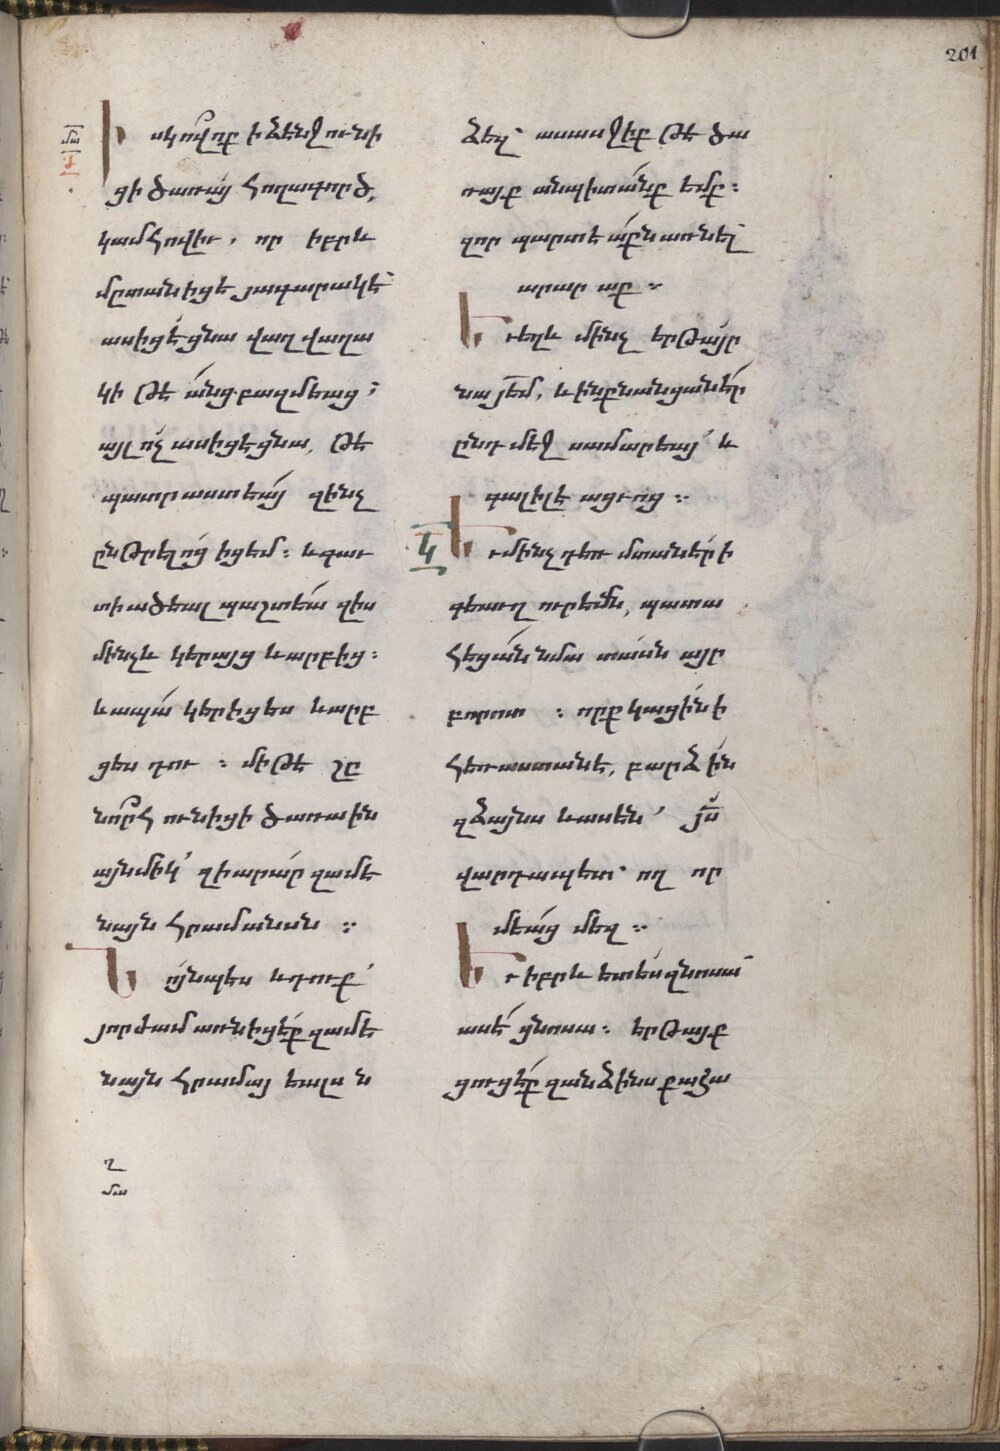 201
մա
Ի սկ ո՞վ ոք ի ձէնջ ունի
ցի ծառայ հողագործ,
կամ հովիւ, որ իբրև
մըտանիցէ յագարակէ՝
ասիցէ ցնա վաղվաղա
կի թէ անց բազմեաց ։
այլ ոչ ասիցէ ցնա, թէ
պատրաստեա՛յ զինչ
ընթրելոց իցեմ ։ և գաւ
տի ածեալ պաշտեա՛ զիս
մինչև կերայց և արբից ։
և ապա՛ կերիցես և արբ
ցես դու ։ միթէ շը
նո՞րհ ունիցի ծառային
այնմիկ՝ զի արա՛ր զամե
նայն հրամանսն ։
Ն ո՛յնպես և դուք՝
յորժամ առնիցէ՛ք զամե
նայն հրամայեալս ն
ղ
մա
ձեզ՝ ասասջիք թէ ծա
ռայք անպիտա՛նք եմք ։
զոր պարտէա՛քն առնել՝
արարաք ։
Ե ւ եղև մինչ երթա՛յր
նա յէմ, և ինքն անցանէ՛ր
ընդ մէջ սամարեայ՝ և
գալիլէացւոց ։
կ
Ե ւ մինչդեռ մտանէ՛ր ի
գեաւղ ուրեմն, պատա
հեցա՛ն նմա տասն այր
բորոտ ։ որք կացի՛ն ի
հեռաստանէ, բարձին
զձայնս և ասեն՝ յս
վարդապետ՝ ող որ
մեա՛ց մեզ ։
Ե ւ իբրև ետես զնոսա՝
ասէ՛ ցնոսա ։ երթայք
ցուցէ՛ք զանձինս քահա